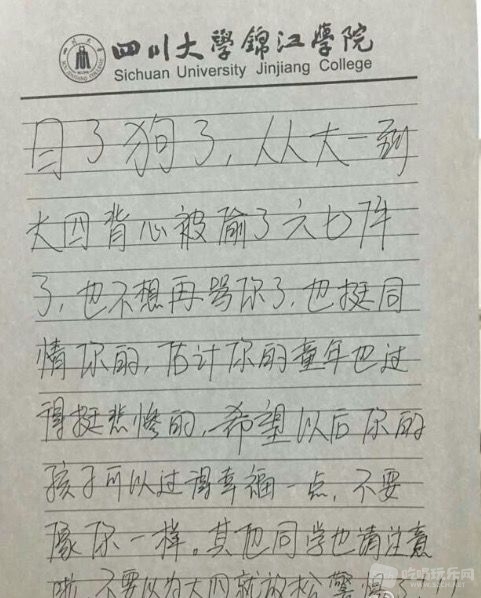 四川大學錦江學院
Sichuan University Jinjiang College
日了狗了，从大一到
大四背心被偷了六七件
了，也不想再骂你了，也挺同
情你的，估计你的童年也过
得挺悲惨的，希望以后你的
孩子可以过得幸福一点，不要
像你一样。其他同学也请注意
啦，不要以为大四就放松警惕了
吃听玩乐网